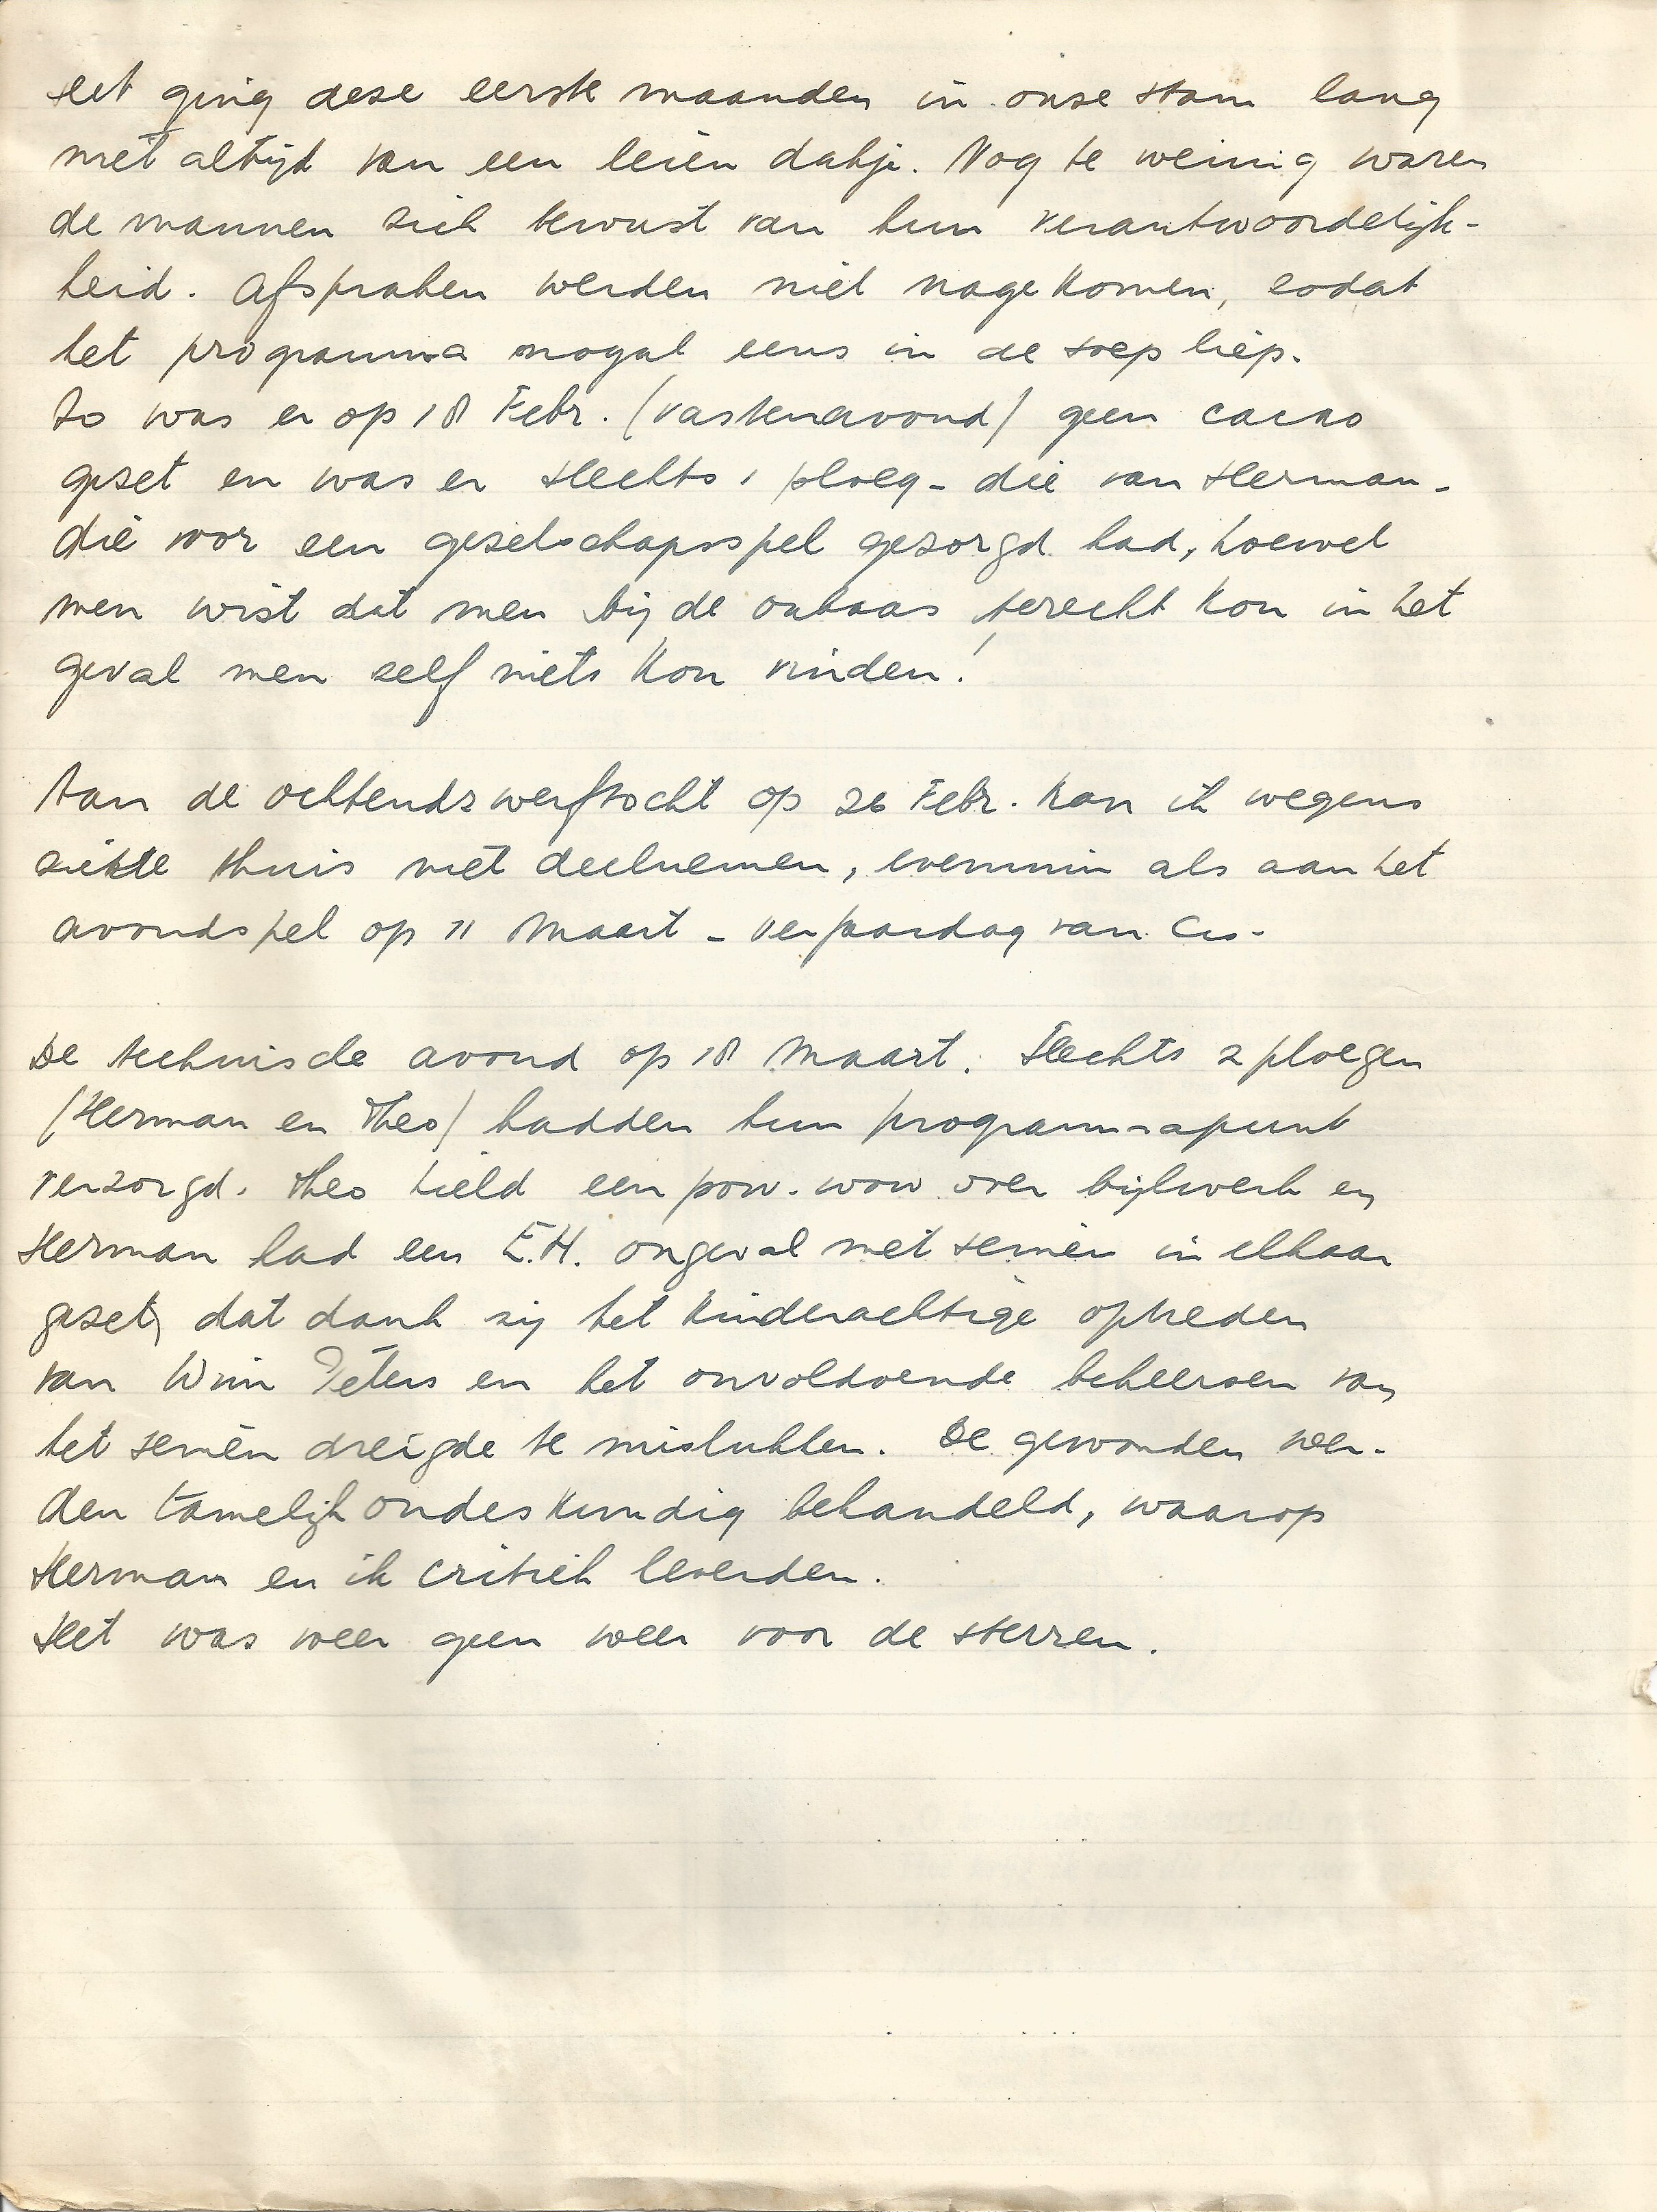 Het ging deze eerste maanden in onze stam lang
niet altijd van een leien dakje. Nog te weinig waren
de mannen zich bewust van hun verantwoordelijk-
heid. Afspraken werden niet nagekomen, zodat
het programma nogal eens in de soep liep.
Zo was er op 18 Febr. (vastenavond) geen cacao
gezet en was er slechts 1 ploeg - die van Herman -
die voor een gezelschapsspel gezorgd had, hoewel
men wist dat men bij de oubaas terecht kon in het
geval men zelf niets kon vinden!
Aan de ochtendzwerftocht op 26 Febr. kon ik wegens
ziekte thuis niet deelnemen, evenmin als aan het
avondspel op 11 Maart - verjaardag van Cis -
De technische avond op 18 Maart. Slechts 2 ploegen
(Herman en Theo) hadden hun programmapunt
verzorgd. Theo hield een pow-wow over bijlwerk en
Herman had een E.H. ongeval met seinen in elkaar
gezet, dat dank zij het kinderachtige optreden
van Wim Peters en het onvoldoende beheersen van
het seinen dreigde te mislukken. De gewonden wer-
den tamelijk ondeskundig behandeld, waarop
Herman en ik critiek leverden.
Het was weer geen weer voor de sterren.